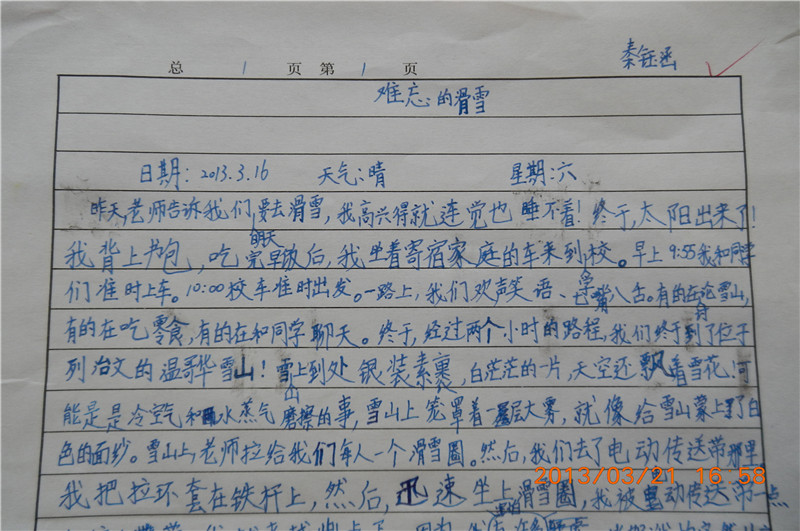 秦钰函
总 1 页 第 1 页
难忘的滑雪
日期：2013.3.16 天气：晴 星期：六
昨天，老师告诉我们明天要去滑雪，我高兴得就连觉也睡不着！终于，太阳出来了！
我背上书包，吃完早饭后，我坐着寄宿家庭的车来到学校。早上9:55我和同学
们准时上车。10:00校车准时出发。一路上，我们欢声笑语、七嘴八舌。有的在论雪山，
有的在吃零食，有的在和同学聊天。终于，经过两个小时的路程，我们终于到了位于
列治文的温哥华雪山！雪山上到处银装素裹，白茫茫的一片，天空还飘着雪花！可
能是是冷空气和水蒸气磨擦的事，雪山上笼罩着一层大雾，就像给雪山蒙上了白
色的面纱。雪山上，老师拉给我们每人一个滑雪圈。然后，我们去了电动传送带那里
我把拉环套在铁杆上，然后，迅速坐上滑雪圈，我被电动传送带一点
2013/03/21 16:58